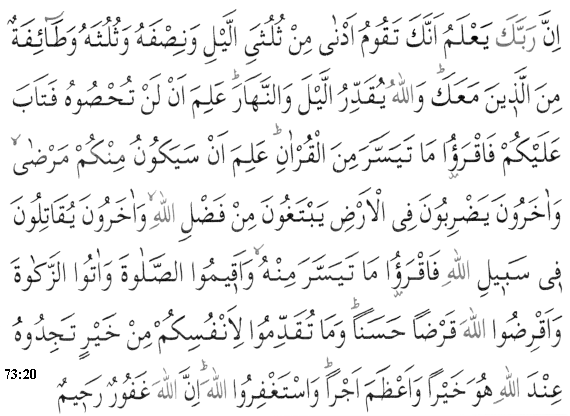 اِنَّ رَبَّكَ يَعْلَمُ اَنَّكَ تَقُومُ اَدْنٰى مِنْ ثُلُثَىِ الَّيْلِ وَنِصْفَهُ وَثُلُثَهُ وَطَٓائِفَةٌ
مِنَ الَّذٖينَ مَعَكَؕ وَاللّٰهُ يُقَدِّرُ الَّيْلَ وَالنَّهَارَؕ عَلِمَ اَنْ لَنْ تُحْصُوهُ فَتَابَ
عَلَيْكُمْ فَاقْرَؤُ۫ا مَا تَيَسَّرَ مِنَ الْقُرْاٰنِؕ عَلِمَ اَنْ سَيَكُونُ مِنْكُمْ مَرْضٰىۙ
وَاٰخَرُونَ يَضْرِبُونَ فِى الْاَرْضِ يَبْتَغُونَ مِنْ فَضْلِ اللّٰهِۙ وَاٰخَرُونَ يُقَاتِلُونَ
فٖى سَبٖيلِ اللّٰهِ فَاقْرَؤُ۫ا مَا تَيَسَّرَ مِنْهُۙ وَاَقٖيمُوا الصَّلٰوةَ وَاٰتُوا الزَّكٰوةَ
وَاَقْرِضُوا اللّٰهَ قَرْضاً حَسَناًؕ وَمَا تُقَدِّمُوا لِاَنْفُسِكُمْ مِنْ خَيْرٍ تَجِدُوهُ
عِنْدَ اللّٰهِ هُوَ خَيْراً وَاَعْظَمَ اَجْراًؕ وَاسْتَغْفِرُوا اللّٰهَؕ اِنَّ اللّٰهَ غَفُورٌ رَحٖيمٌ
73:20